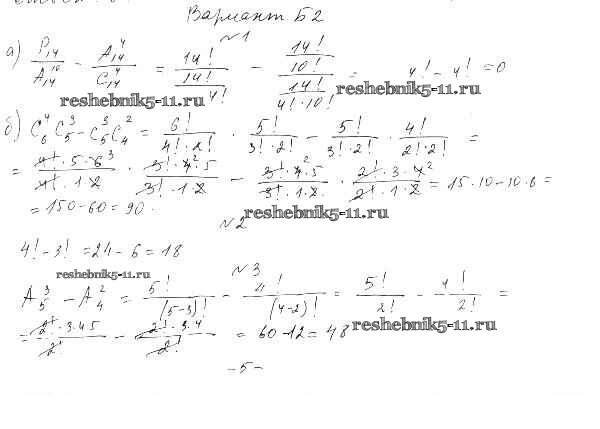 Вариант Б2
№1
а) P₁₄/A₁₄¹⁰ - A₁₄⁴/C₁₄⁴ = 14!/(14!/4!) - (14!/10!)/(14!/(4!·10!)) = 4! - 4! = 0
reshebnik5-11.ru reshebnik5-11.ru
б) C₆⁴ C₅³ - C₅³ C₄² = 6!/(4!·2!) · 5!/(3!·2!) - 5!/(3!·2!) · 4!/(2!·2!) =
= (4!·5·6³)/(4!·1·2) · (3!·4²·5)/(3!·1·2) - (3!·4²·5)/(3!·1·2) · (2!·3·4²)/(2!·1·2) = 15·10-10·6 =
= 150-60 = 90.
reshebnik5-11.ru
№2
4!-3! = 24-6 = 18
reshebnik5-11.ru
№3
A₅³ - A₄² = 5!/(5-3)! - 4!/(4-2)! = 5!/2! - 4!/2! =
= (2!·3·4·5)/2! - (2!·3·4)/2! = 60-12 = 48
reshebnik5-11.ru
-5-